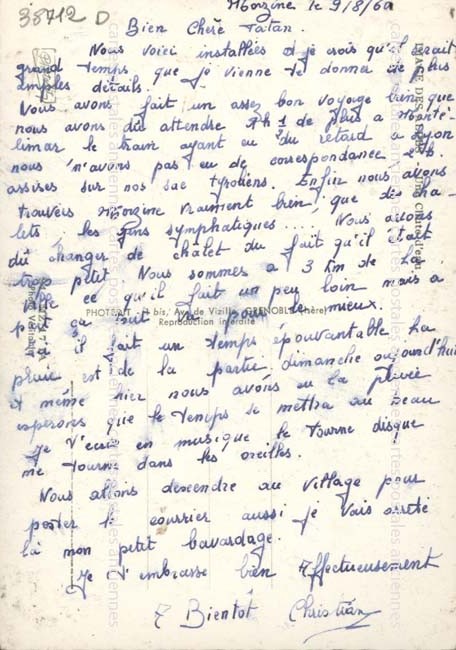 38712 D
Morzine le 9/8/60
Bien Chère Tatan.
Nous voici installées et je crois qu'il serait
grand temps que je vienne te donner de plus
amples détails.
Nous avons fait un assez bon voyage bien que
nous avons dû attendre 1h de plus a Monté-
limar le train ayant eu du retard a Lyon
nous n'avons pas eu de correspondance
assises sur nos sac tyroliens. Enfin nous avons
trouvers Morzine vraiment bien, que des cha-
lets, les gens symphatiques .... Nous avons
dû changer de châlet du fait qu'il était
trop petit. Nous sommes a 3 Km de la
ville ce qu'il fait un peu loin mais a
part ça tout va pour le mieux.
PHOTEXIT - 1 bis, Av. de Vizille, GRENOBLE (Isère)
Reproduction interdite
il fait un temps épouvantable la
pluie est de la partie dimanche aujourd'hui
et même hier nous avons eu la pluie
esperons que le temps se mettra au beau
Je t'écris en musique le tourne disque
me tourne dans les oreilles.
Nous allons descendre au village pour
poster le courrier aussi je vais arrêté
là mon petit bavardage.
Je t'embrasse bien Affectueusement
A Bientôt Christian